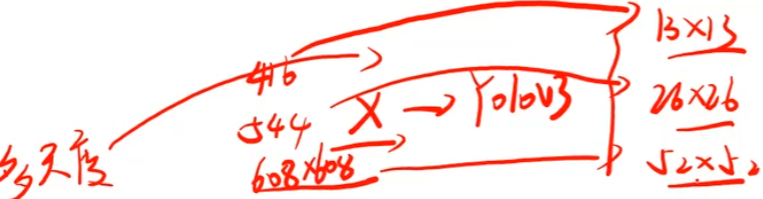 416
544
608×608
多尺度
X → YoloV3
13×13
26×26
52×52